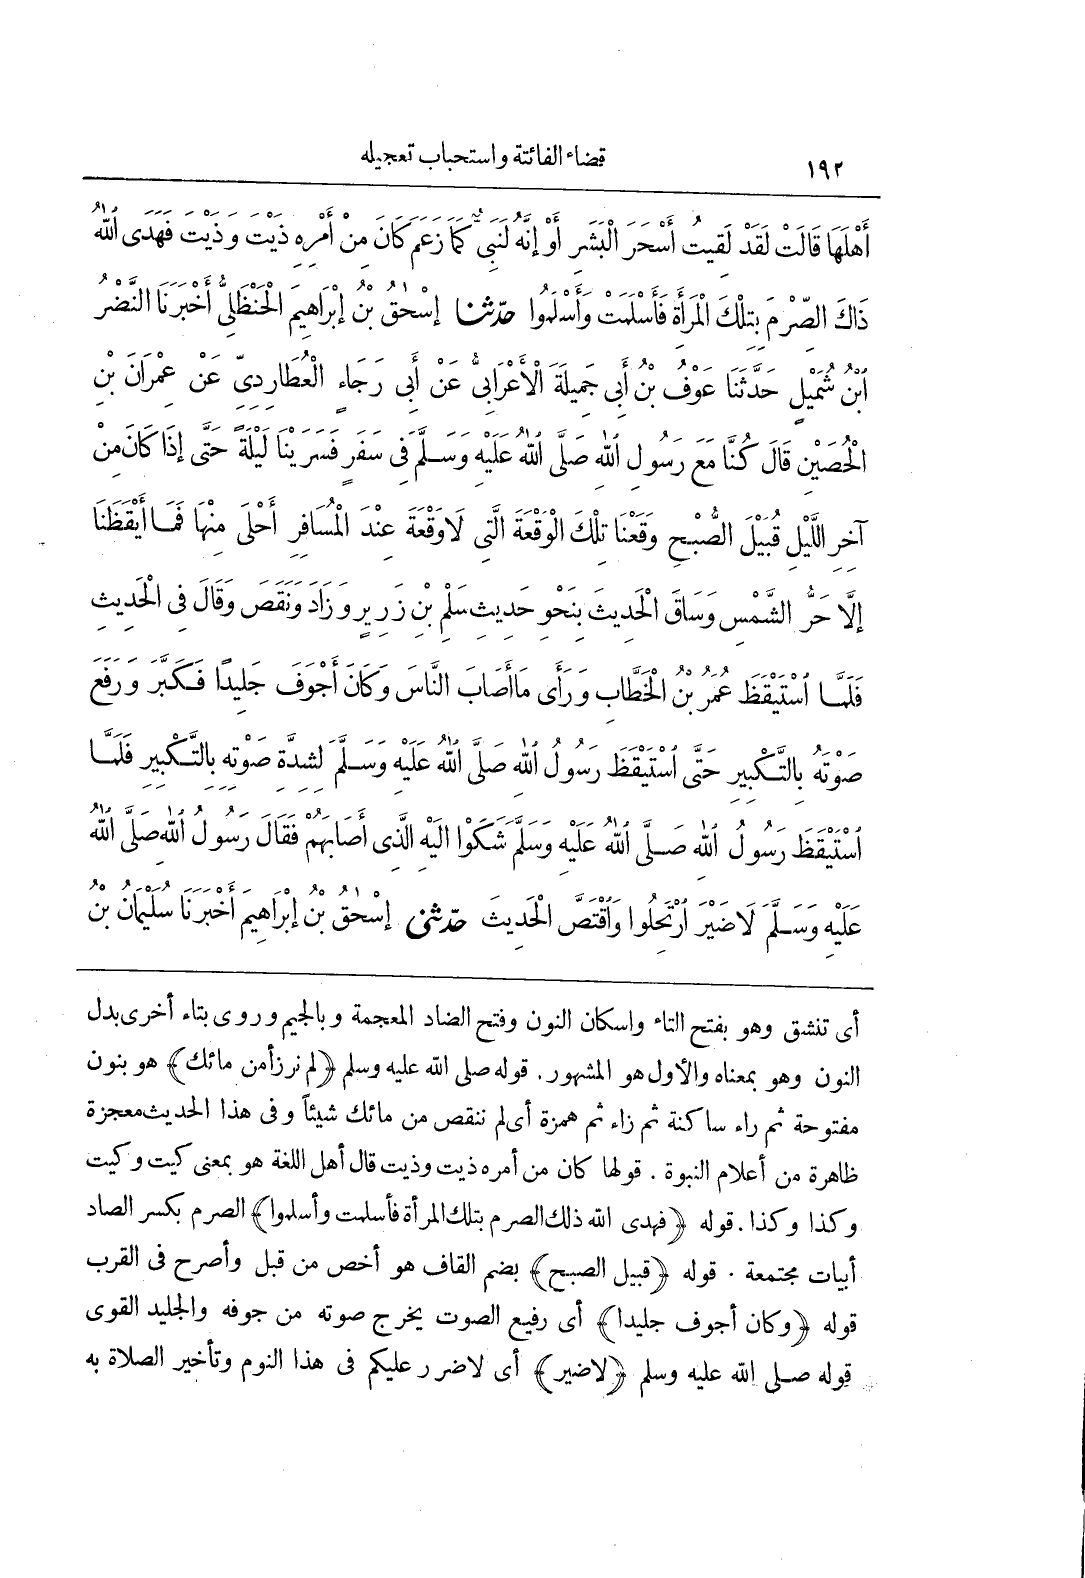 قضاء الفائتة واستحباب تعجيله
١٩٢
أَهْلَهَا قَالَتْ لَقَدْ لَقِيتُ أَسْحَرَ الْبَشَرِ أَوْ إِنَّهُ لَنَبِىٌّ كَمَا زَعَمَ كَانَ مِنْ أَمْرِهِ ذَيْتَ وَذَيْتَ فَهَدَى اللهُ
ذَاكَ الصِّرْمَ بِتِلْكَ الْمَرْأَةِ فَأَسْلَمَتْ وَأَسْلَمُوا حدّثنا إِسْحٰقُ بْنُ إِبْرَاهِيمَ الْحَنْظَلِىُّ أَخْبَرَنَا النَّضْرُ
ابْنُ شُمَيْلٍ حَدَّثَنَا عَوْفُ بْنُ أَبِى جَمِيلَةَ الْأَعْرَابِىُّ عَنْ أَبِى رَجَاءٍ الْعُطَارِدِىِّ عَنْ عِمْرَانَ بْنِ
الْحُصَيْنِ قَالَ كُنَّا مَعَ رَسُولِ اللهِ صَلَّى اللهُ عَلَيْهِ وَسَلَّمَ فِى سَفَرٍ فَسَرَيْنَا لَيْلَةً حَتَّى إِذَا كَانَ مِنْ
آخِرِ اللَّيْلِ قُبَيْلَ الصُّبْحِ وَقَعْنَا تِلْكَ الْوَقْعَةَ الَّتِى لَا وَقْعَةَ عِنْدَ الْمُسَافِرِ أَحْلَى مِنْهَا فَمَا أَيْقَظَنَا
إِلَّا حَرُّ الشَّمْسِ وَسَاقَ الْحَدِيثَ بِنَحْوِ حَدِيثِ سَلْمِ بْنِ زَرِيرٍ وَزَادَ وَنَقَصَ وَقَالَ فِى الْحَدِيثِ
فَلَمَّا اسْتَيْقَظَ عُمَرُ بْنُ الْخَطَّابِ وَرَأَى مَا أَصَابَ النَّاسَ وَكَانَ أَجْوَفَ جَلِيدًا فَكَبَّرَ وَرَفَعَ
صَوْتَهُ بِالتَّكْبِيرِ حَتَّى اسْتَيْقَظَ رَسُولُ اللهِ صَلَّى اللهُ عَلَيْهِ وَسَلَّمَ لِشِدَّةِ صَوْتِهِ بِالتَّكْبِيرِ فَلَمَّا
اسْتَيْقَظَ رَسُولُ اللهِ صَلَّى اللهُ عَلَيْهِ وَسَلَّمَ شَكَوْا الَيْهِ الَّذِى أَصَابَهُمْ فَقَالَ رَسُولُ اللهِ صَلَّى اللهُ
عَلَيْهِ وَسَلَّمَ لَا ضَيْرَ ارْتَحِلُوا وَاقْتَصَّ الْحَدِيثَ حدّثنى إِسْحٰقُ بْنُ إِبْرَاهِيمَ أَخْبَرَنَا سُلَيْمَانُ بْنُ
أى تنشق وهو بفتح التاء واسكان النون وفتح الضاد المعجمة وبالجيم وروى بتاء أخرى بدل
النون وهو بمعناه والأول هو المشهور. قوله صلى الله عليه وسلم ﴿لم نرزأ من مائك﴾ هو بنون
مفتوحة ثم راء ساكنة ثم زاء ثم همزة أى لم ننقص من مائك شيئاً وفى هذا الحديث معجزة
ظاهرة من أعلام النبوة. قولها كان من أمره ذيت وذيت قال أهل اللغة هو بمعنى كيت وكيت
وكذا وكذا. قوله ﴿فهدى الله ذلك الصرم بتلك المرأة فأسلمت وأسلموا﴾ الصرم بكسر الصاد
أبيات مجتمعة. قوله ﴿قبيل الصبح﴾ بضم القاف هو أخص من قبل وأصرح فى القرب
قوله ﴿وكان أجوف جليدا﴾ أى رفيع الصوت يخرج صوته من جوفه والجليد القوى
قوله صلى الله عليه وسلم ﴿لاضير﴾ أى لا ضرر عليكم فى هذا النوم وتأخير الصلاة به